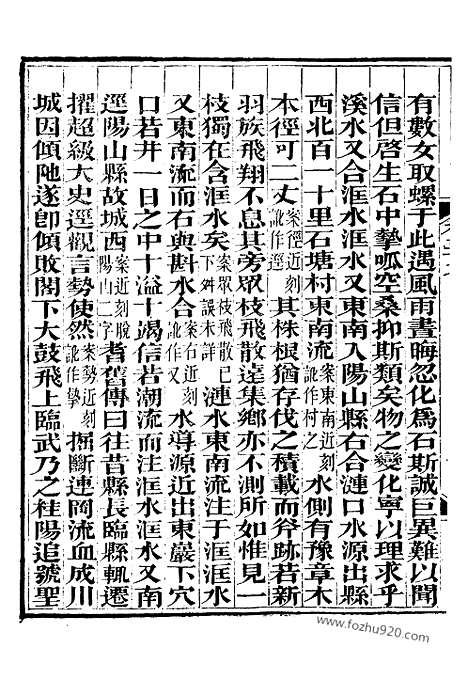 有數女取螺于此遇風雨晝晦忽化爲石斯誠巨異難以聞
信但啓生石中摯呱空桑抑斯類矣物之變化寧以理求乎
溪水又合洭水洭水又東南入陽山縣右合漣口水源出縣
西北百一十里石塘村東南流案東南近刻訛作村之水側有豫章木
本徑可二丈案徑近刻訛作逕其株根猶存伐之積載而斧跡若新
羽族飛翔不息其旁眾枝飛散遠集鄉亦不測所如惟見一
枝獨在含洭水矣案眾枝飛散已下舛誤未詳漣水東南流注于洭洭水
又東南流而右與斟水合案右近刻訛作又水導源近出東巖下穴
口若井一日之中十溢十竭信若潮流而注洭水洭水又南
逕陽山縣故城西案近刻脫陽山二字者舊傳曰往昔縣長臨縣輒遷
擢超級大史逕觀言勢使然案勢近刻訛作摯掘斷連岡流血成川
城因傾阤遂卽傾敗閣下大鼓飛上臨武乃之桂陽追號聖
www.fozhu920.com